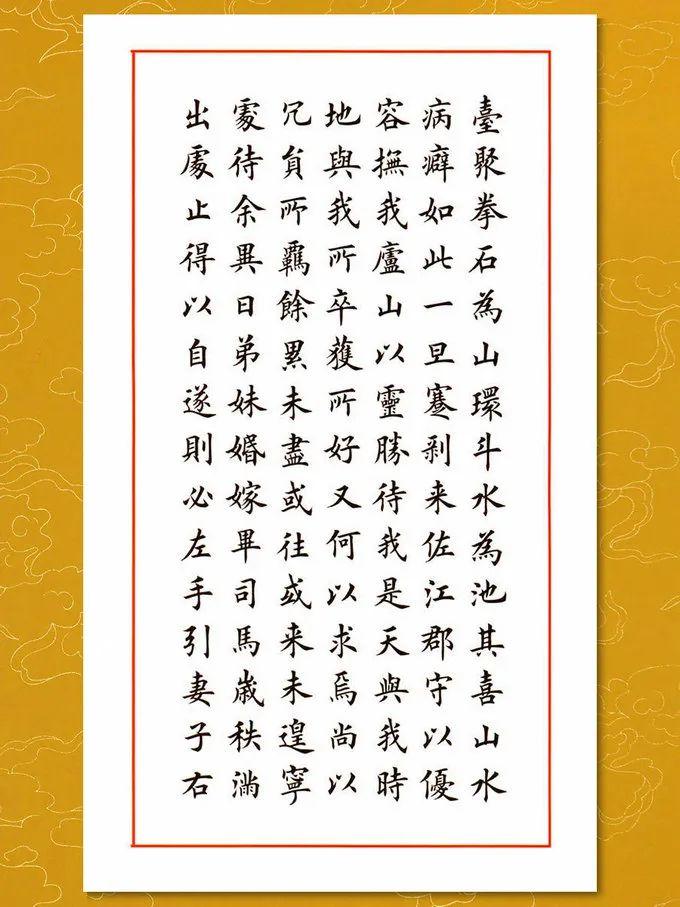 臺聚拳石為山環斗水為池其喜山水
病癖如此一旦蹇剥来佐江郡守以優
容撫我廬山以靈勝待我是天與我時
地與我所卒獲所好又何以求焉尚以
冗員所羈餘累未盡或往或来未遑寧
處待余異日弟妹婚嫁畢司馬歲秩滿
出處止得以自遂則必左手引妻子右